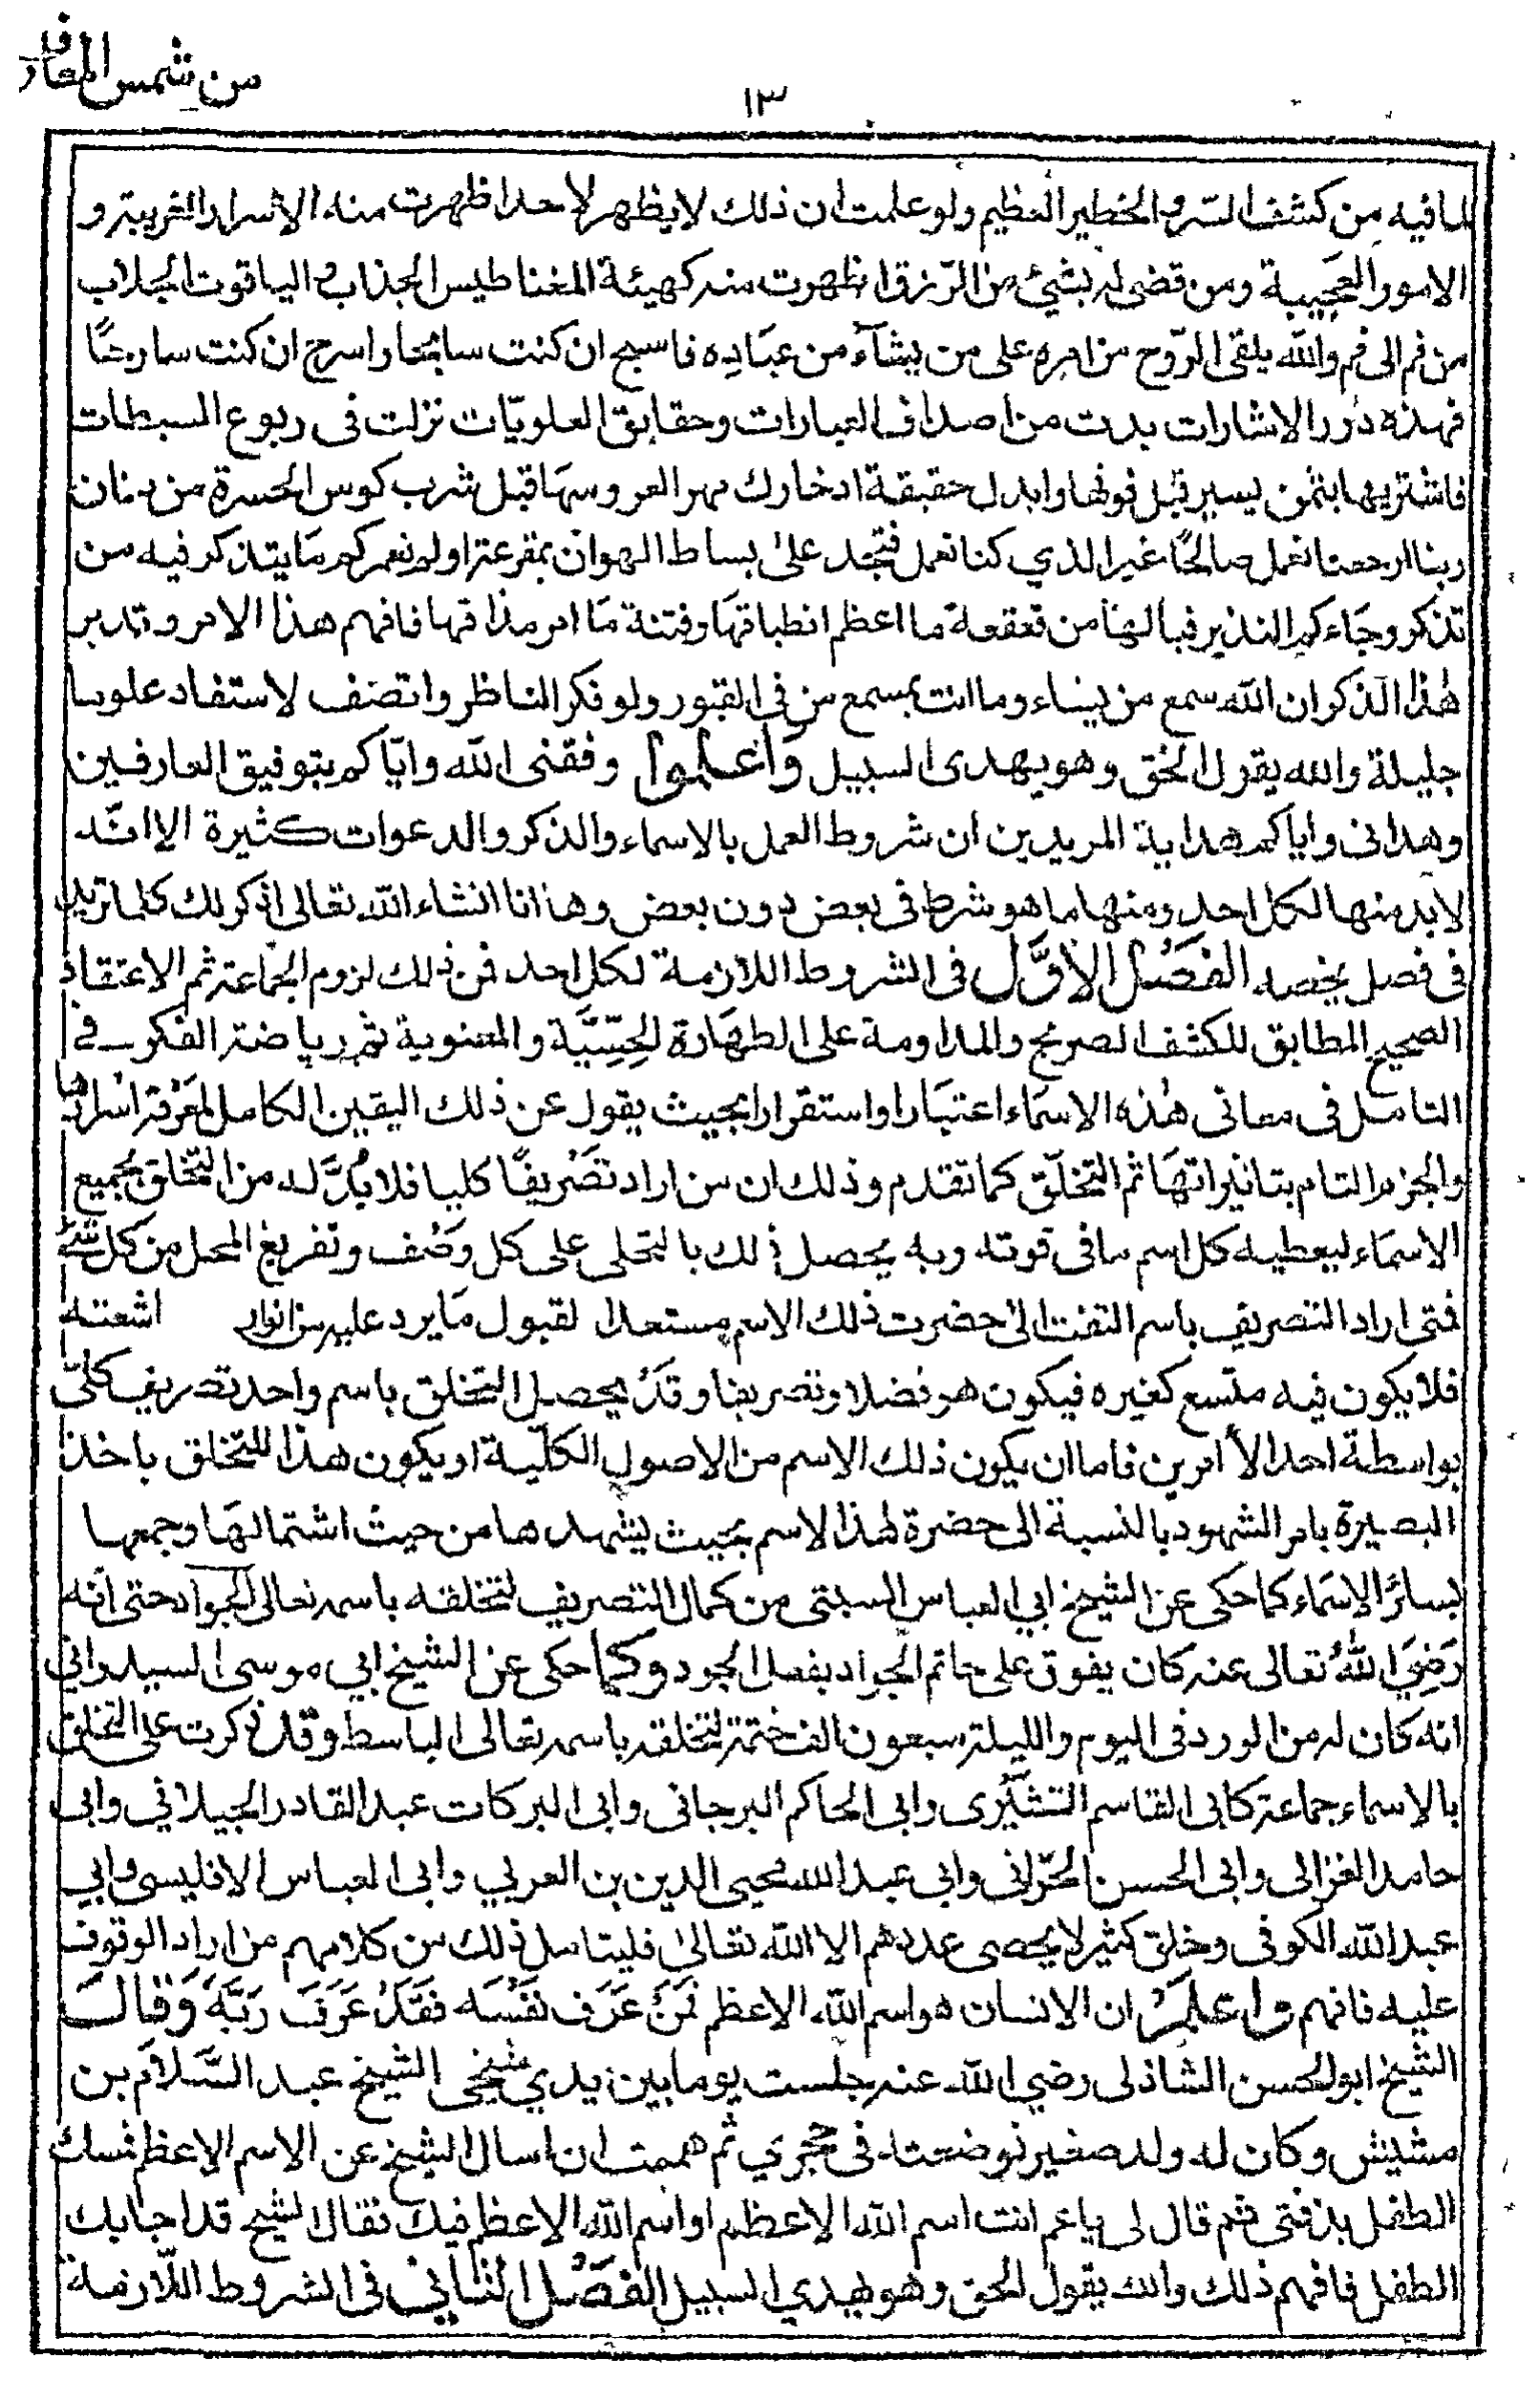 من شمس المعارف
١٣
لمافيه من كشف السر والخطير العظيم ولو علمت ان ذلك لا يظهر لاحد اظهرت منه الاسرار الغريبة و
الامور العجيبة ومن قضى له بشئ من الرّزق اظهرت منه كهيئة المغناطيس الجذاب والياقوت الجلاب
من فم الى فم والله يلقى الرّوح من امره على من يشآء من عبَادِه فاسبح ان كنت سابحًا واسرح ان كنت سارحًا
فهذه درر الاشارات بدت من اصداف العبارات وحقايق العلويّات نزلت فى ربوع السبطات
فاشتريها بثمن يسير قبل فوتها وابدل حقيقة ادخارك مهر العروسها قبل شرب كوس الحسرة من دنان
ربنا ارجعنا نعمل صالحًا غير الذي كنا نعمل فتجد على بساط الهوان بمقرعة اولم نعمركم مَا يتذكر فيه من
تذكر وجَاءكم النذير فيالهَا من قعقعة ما اعظم انطباقهَا وفتنة مَا امر مذاقها فافهم هذا الامر وتدبر
هٰذا الذكر ان الله سمع من يشاء وما انت بمسمع من فى القبور ولو فكر الناظر واتصَف لاستفاد علوما
جليلة والله يقول الحق وهو يهدى السبيل وَاعلموا وفقنى الله وايّاكم بتوفيق العارفين
وهدانى واياكم هداية المريدين ان شروط العمل بالاسماء والذكر والدعوات كثيرة الا انّه
لابد منها لكل احد ومنها ما هو شرط فى بعض دون بعض وها انا انشاء الله تعالى اذكر لك كلما تريد
فى فصل يخصه الفَصْل الأوَّل فى الشروط اللازمة لكل احد فمن ذلك لزوم الجماعة ثم الاعتقاد
الصحيح المطابق للكشف الصريح والمداومة على الطهَارة الحِسِّيَّة والمعنوية ثم رياضة الفكر فى
التامل فى معانى هٰذه الاسمَاء اعتبَارا واستقرارا بحيث يقول عن ذلك اليقين الكامل لمعَرْفة اسْرارها
والجزم التام بتاثيراتهَا ثم التخلّق كما تقدم وذلك ان من اراد تصَريفًا كليا فلا بُدَّ له من التخلق بجميع
الاسمَاء ليعطيه كل اسم مافى قوته وبه يحصل ذلك بالتحلى على كل وصَف وتفريغ المحل من كل شئ
فمتى اراد التصريف باسم التفت الى حضرت ذلك الاسم مستعدا لقبول مَا يرد عليه من انوار اشعته
فلا يكون فيه متسع كغيره فيكون هو فضلا وتصريفا وقدْ يحصل التخلق باسم واحد تصريف كلىّ
بواسطة احد الأمرين فاما ان يكون ذلك الاسم من الاصول الكلّية او يكون هذا للتخلق باخذ
البصيرة بامر الشهود بالنسبة الى حضرة لهذا الاسم بحيث يشهدها من حيث اشتمالهَا وجمعها
بسائر الاسمَاء كما حكى عن الشيخ ابي العباس السبتى من كمال التصريف لتخلقه باسمه تعالى الجواد حتى انه
رَضِيَ اللهُ تعالى عنه كان يفوق على حاتم الجواد بفعل الجود وكما حكى عن الشيخ ابي موسى السيدرانى
انه كان له من الورد فى اليوم والليلة سبعون الف ختمة لتخلقه باسمه تعالى الباسط وقد ذكرت على التخلق
بالاسماء جماعة كابى القاسم القشيْرى وابى الحاكم البرجانى وابى البركات عبد القادر الجيلانى وابى
حامد الغزالى وابى الحسن الحرّانى وابى عبد الله محيى الدين بن العربي وابى العباس الاقليسى وابي
عبد الله الكوفى وخلق كثير لا يحصى عددهم الا الله تعالى فليتامل ذلك من كلامهم من اراد الوقوف
عليه فافهم واعلمْ ان الانسان هو اسم الله الاعظم فمَنْ عَرَف نفَسَه فقَدْ عَرَفَ رَبَّهُ وَقالَ
الشيخ ابو الحسن الشاذلى رضي الله عنه جلست يوما بين يدي شيخى الشيخ عبد السَّلاَم بن
مشيش وكان له ولد صغير فوضعته فى حجري ثم هممت ان اسال الشيخ عن الاسم الاعظم فمسك
الطفل بذقنى ثم قال لى ياعم انت اسم الله الاعظم او اسم الله الاعظم فيك فقال الشيخ قد اجابك
الطفل فافهم ذلك والله يقول الحق وهو يهدي السبيل الفصْل الثاني فى الشروط اللّازمة